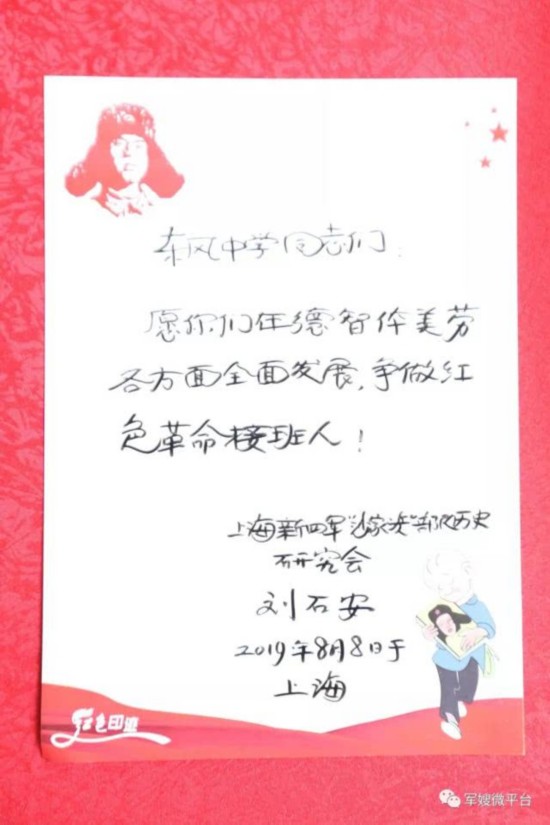 东风中学同志们：
愿你们在德智体美劳
各方面全面发展，争做红
色革命接班人！
上海新四军"沙家浜"部队历史
研究会
刘石安
2019年8月8日于
上海
红色印迹
军嫂微平台